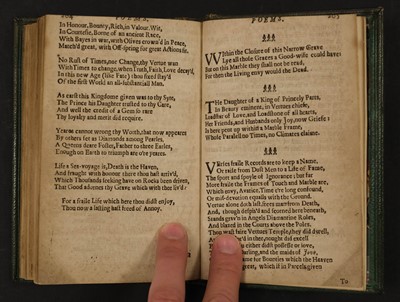 204
POEMS.
In Honour, Bounty, Rich, in Valour, Wit,
In Courtesie, Borne of an ancient Race,
With Bayes in war, with Olives crown'd in Peace,
Match'd great, with Off-spring for great Actions fit.
No Rust of Times, nor Change, thy Vertue wan
With Times to change, when Truth, Faith, Love decay'd,
In this new Age (like Fate) thou fixed stay'd
Of the first World an all-substantiall Man.
As earst this Kingdome given was to thy Syre,
The Prince his Daughter trusted to thy Care,
And well the credit of a Gem so rare
Thy loyalty and merit did require.
Yeares cannot wrong thy Worth, that now appeares
By others set as Diamonds among Pearles,
A Queens deare Foster, Father to three Earles,
Enough on Earth to triumph are o're yeares.
Life a Sea-voyage is, Death is the Haven,
And fraught with honour there thou hast arriv'd,
Which Thousands seeking have on Rocks been driven,
That Good adornes thy Grave which with thee liv'd:
For a fraile Life which here thou didst enjoy,
Thou now a lasting hast freed of Annoy.
POEMS.
205
WIthin the Closure of this Narrow Grave
Lye all those Graces a Good-wife could have:
But on this Marble they shall not be read,
For then the Living envy would the Dead.
THe Daughter of a King of Princely Parts,
In Beauty eminent, in Vertues chiefe,
Loadstar of Love, and Loadstone of all hearts,
Her Friends, and Husbands only Joy, now Griefe;
Is here pent up within a Marble Frame,
Whose Paralell no Times, no Climates claime.
VErses fraile Records are to keep a Name,
Or raise from Dust Men to a Life of Fame,
The sport and spoyle of Ignorance; but far
More fraile the Frames of Touch and Marble are,
Which envy, Avarice, Time e're long confound,
Or mis-devotion equalls with the Ground.
Vertue alone doth last, frees man from Death,
And, though despis'd and scorned here beneath,
Stands grav'n in Angels Diamantine Rolles,
And blazed in the Courts above the Poles.
Thou wast faire Vertues Temple, they did dwell,
in thee, nought did excell
either possesse or love,
and the maids of Jove,
for Bounties which the Heaven
great, which if in Parcels given
To